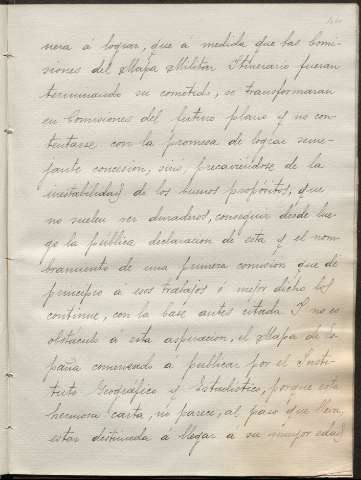 nera á lograr, que á medida que las Comi-
siones del Mapa Militar Itinerario fueran
terminando su cometido, se transformaran
en Comisiones del futuro plano y no con-
tentarse con la promesa de lograr seme-
jante concesion, sinó, precaviéndose de la
inestabilidad de los buenos propósitos, que
no suelen ser duraderos, conseguir desde lue-
go la pública declaracion de esta y el nom-
bramiento de una primera comision que dé
principio a esos trabajos ó mejor dicho los
continúe, con la base antes citada. Y no es
obstáculo á esta aspiracion, el Mapa de Es-
paña comenzado a publicar por el Insti-
tuto Geográfico y Estadístico, porque esta
hermosa carta, no parece, al paso que lleva,
estar destinada á llegar a su mayor edad